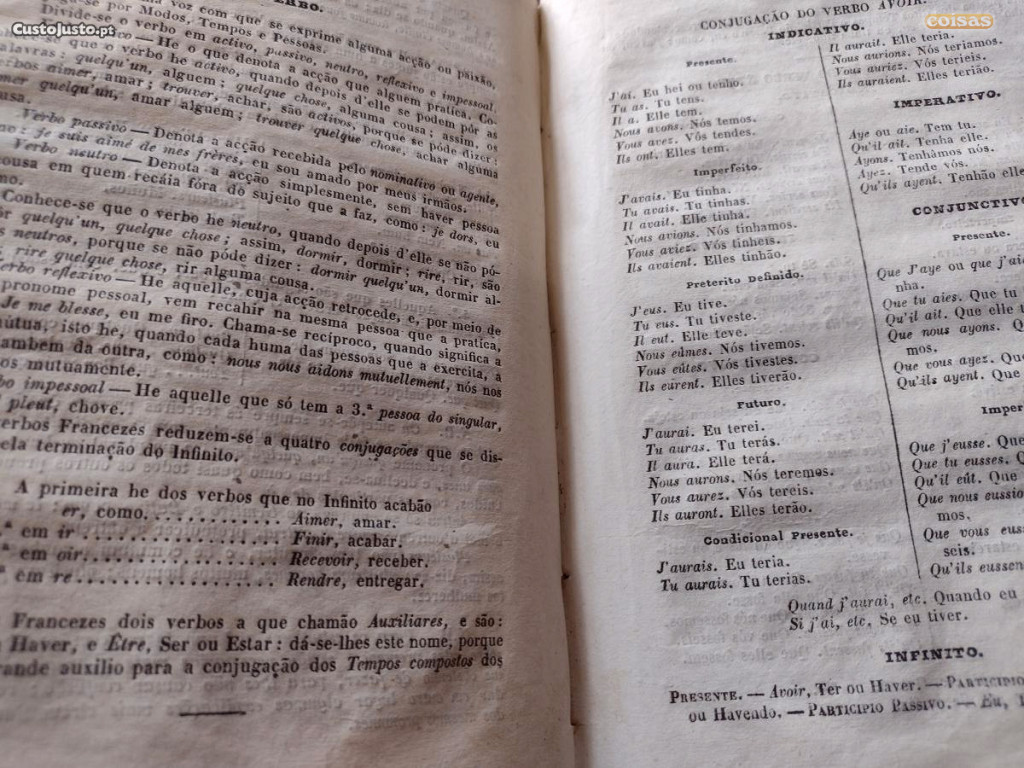 CustoJusto.pt
coisas
VERBO.
voz com que se exprime alguma acção ou paixão,
por Modos, Tempos e Pessoas.
Divide-se o verbo em activo, passivo, neutro, reflexivo e impessoal.
He o que denota a acção que alguem pratica. Co-
que o verbo he activo, quando depois d'elle se podem pôr as
: quelqu'un, alguem; quelque chose, alguma cousa; assim, os
aimer, amar; trouver, achar, são activos, porque se póde dizer:
quelqu'un, amar alguem; trouver quelque chose, achar alguma
Verbo passivo — Denota a acção recebida pelo nominativo ou agente,
: je suis aimé de mes frères, eu sou amado por meus irmãos.
Verbo neutro — Denota a acção simplesmente, sem haver pessoa
cousa em quem recáia fóra do sujeito que a faz, como: je dors, eu
Conhece-se que o verbo he neutro, quando depois d'elle se não pó-
quelqu'un, quelque chose; assim, dormir, dormir; rire, rir, são
neutros, porque se não póde dizer: dormir quelqu'un, dormir al-
rire quelque chose, rir alguma cousa.
reflexivo — He aquelle, cuja acção retrocede, e, por meio de
pronome pessoal, vem recahir na mesma pessoa que a pratica,
Je me blesse, eu me firo. Chama-se recíproco, quando significa a
mútua, isto he, quando cada huma das pessoas que a exercita, a
tambem da outra, como: nous nous aidons mutuellement, nós nos
mutuamente.
impessoal — He aquelle que só tem a 3.ª pessoa do singular,
pleut, chove.
verbos Francezes reduzem-se a quatro conjugações que se dis-
pela terminação do Infinito.
A primeira he dos verbos que no Infinito acabão
er, como............ Aimer, amar.
em ir.................. Finir, acabar.
em oir................. Recevoir, receber.
em re.................. Rendre, entregar.
Francezes dois verbos a que chamão Auxiliares, e são:
Haver, e Être, Ser ou Estar: dá-se-lhes este nome, porque
grande auxilio para a conjugação dos Tempos compostos dos
CONJUGAÇÃO DO VERBO AVOIR.
INDICATIVO.
Presente.
J'ai. Eu hei ou tenho.
Tu as. Tu tens.
Il a. Elle tem.
Nous avons. Nós temos.
Vous avez. Vós tendes.
Ils ont. Elles tem.
Imperfeito.
J'avais. Eu tinha.
Tu avais. Tu tinhas.
Il avait. Elle tinha.
Nous avions. Nós tinhamos.
Vous aviez. Vós tinheis.
Ils avaient. Elles tinhão.
Preterito Definido.
J'eus. Eu tive.
Tu eus. Tu tiveste.
Il eut. Elle teve.
Nous eûmes. Nós tivemos.
Vous eûtes. Vós tivestes.
Ils eurent. Elles tiverão.
Futuro.
J'aurai. Eu terei.
Tu auras. Tu terás.
Il aura. Elle terá.
Nous aurons. Nós teremos.
Vous aurez. Vós tereis.
Ils auront. Elles terão.
Condicional Presente.
J'aurais. Eu teria.
Tu aurais. Tu terias.
Il aurait. Elle teria.
Nous aurions. Nós teriamos.
Vous auriez. Vós terieis.
Ils auraient. Elles terião.
IMPERATIVO.
Aye ou aie. Tem tu.
Qu'il ait. Tenha elle.
Ayons. Tenhâmos nós.
Ayez. Tende vós.
Qu'ils ayent. Tenhão elle
CONJUNCTIVO
Presente.
Que J'aye ou que j'aie
nha.
Que tu aies. Que tu
Qu'il ait. Que elle
Que nous ayons. Que
mos.
Que vous ayez. Que
Qu'ils ayent. Que
Imper
Que j'eusse. Que
Que tu eusses.
Qu'il eût. Que
Que nous eussio
mos.
Que vous eus
seis.
Qu'ils eussen
Quand j'aurai, etc. Quando eu
Si j'ai, etc. Se eu tiver.
INFINITO.
PRESENTE. — Avoir, Ter ou Haver. — PARTICIPIO
ou Havendo. — PARTICIPIO PASSIVO. — Eu,